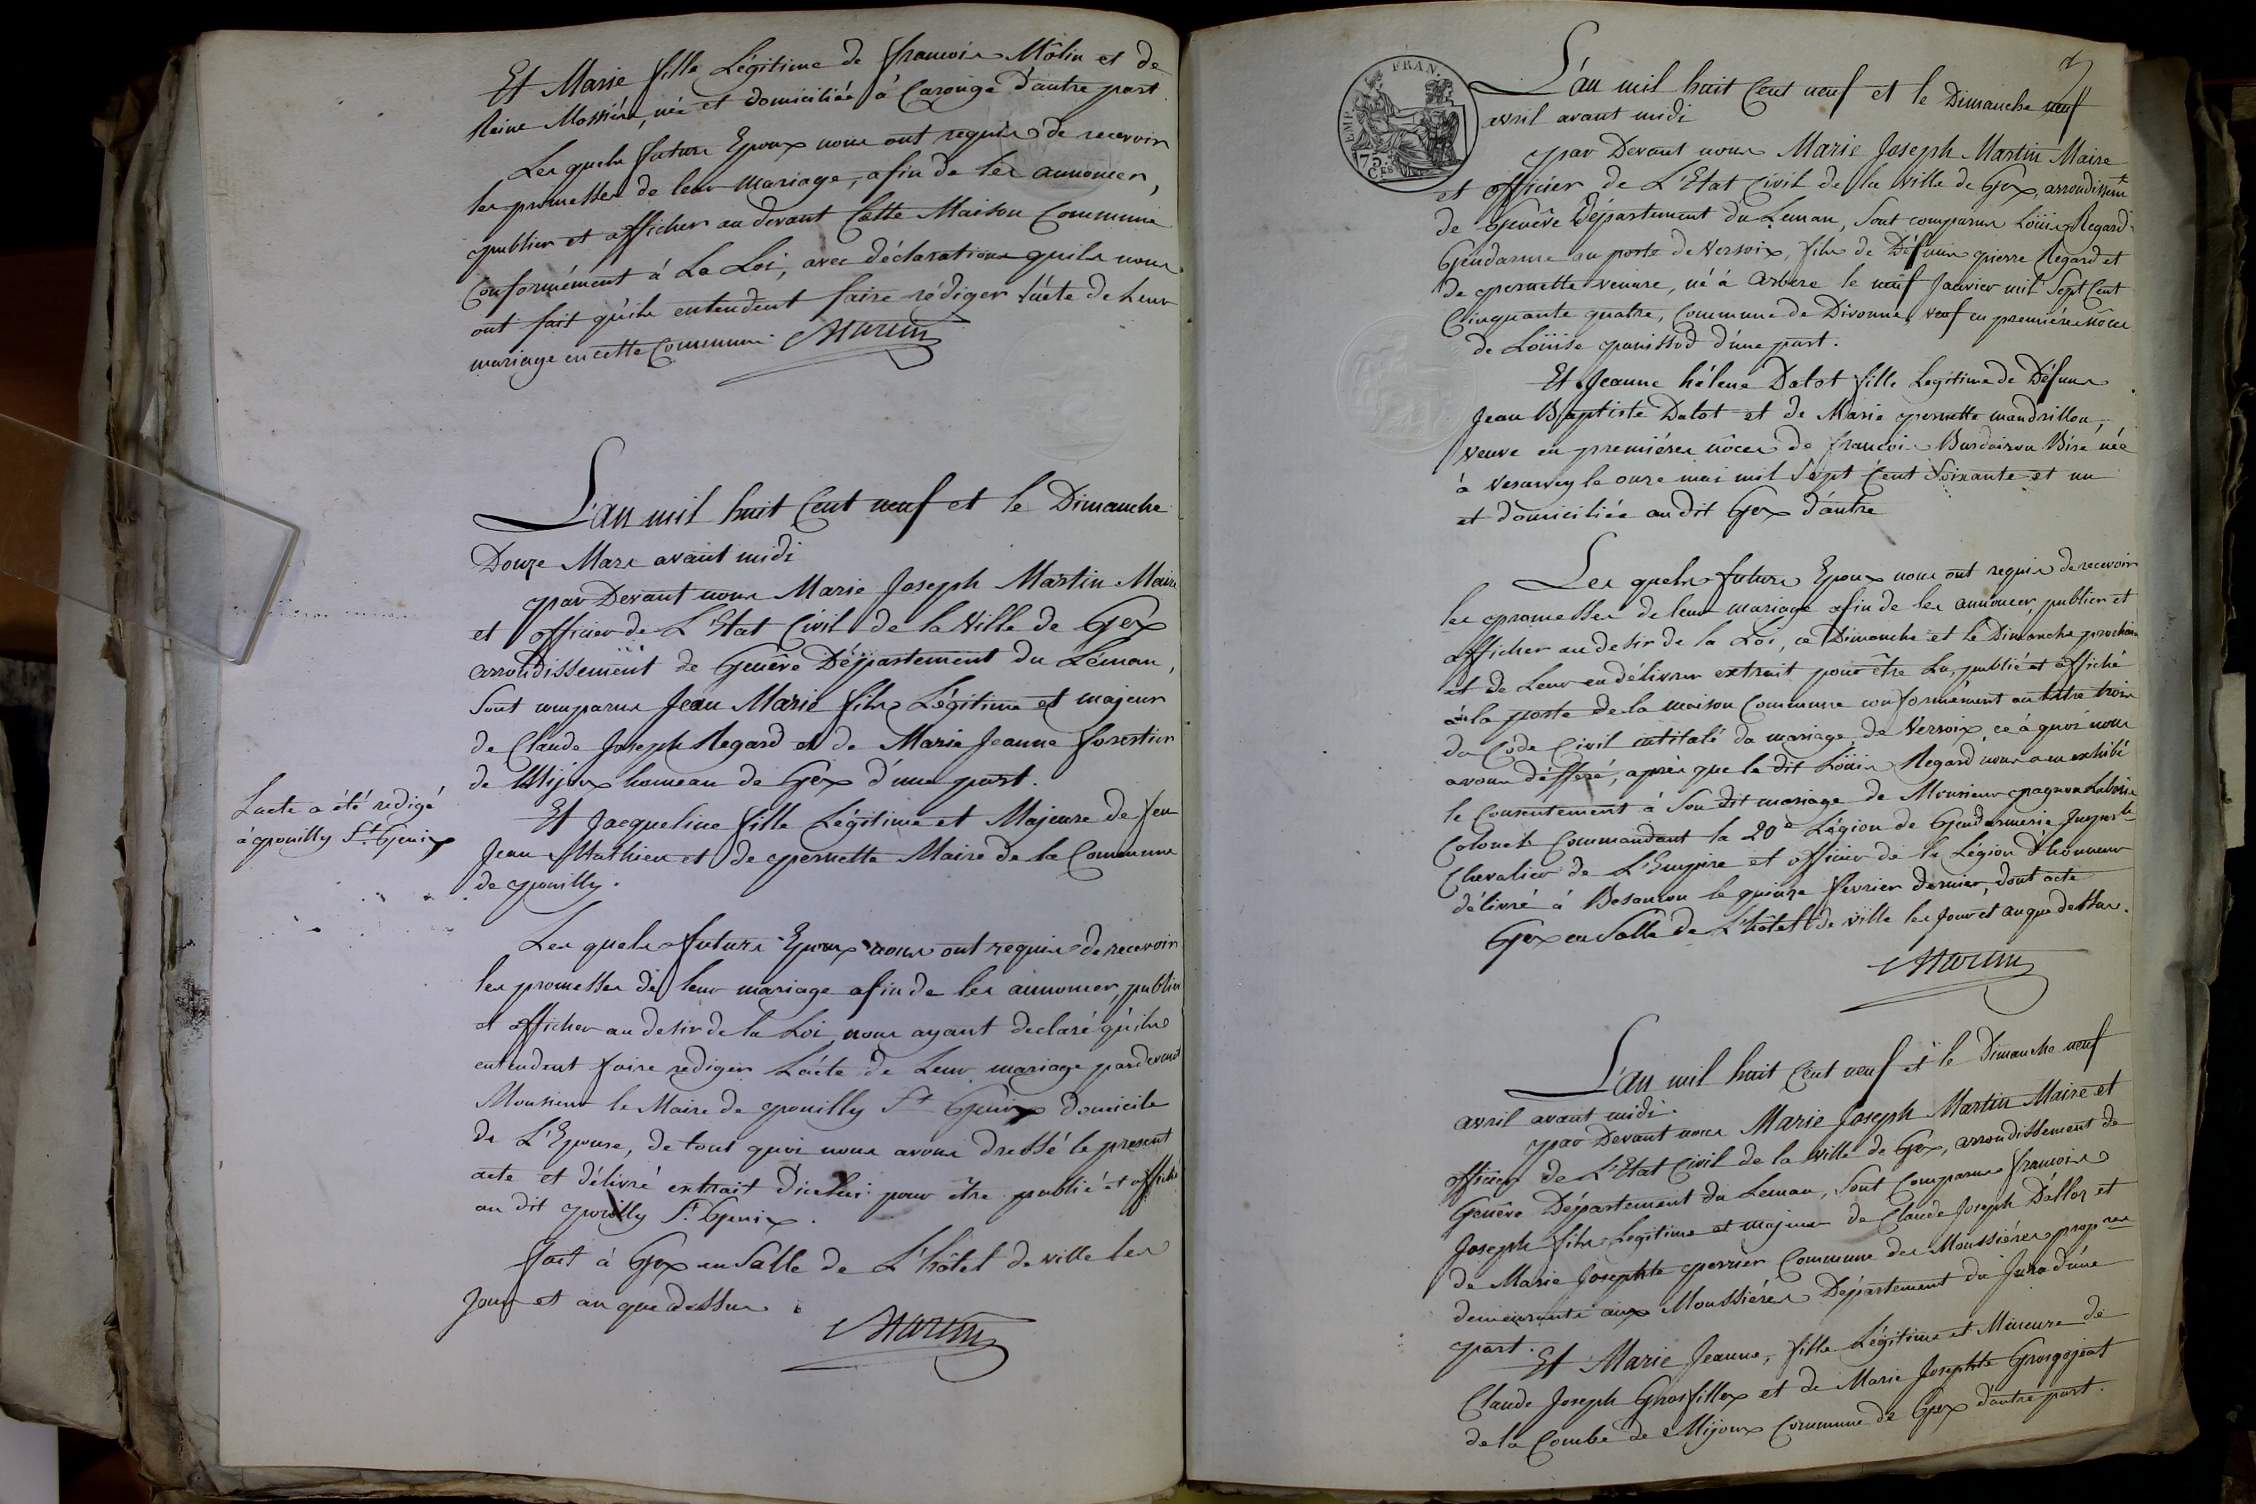 Et Marie fille Légitime de francois Môlin et de
Reine Mossiére, née et domiciliée à Carouge d'autre part.
Les quels futurs Epoux nous ont requis de recevoir
les promesses de leur Mariage, afin de les annoncer,
publier et afficher au devant Cette Maison Commune
Conformément à La Loi, avec déclarations quils nous
ont fait qu'ils entendent faire rédiger l'acte de Leur
mariage en cette Commune. Martin
L'an mil huit Cent neuf et le Dimanche
Douze Mars avant midi
par Devant nous Marie Joseph Martin Maire
et officier de L'Etat Civil de la Ville de Gex
arrondissement de Genêve Département du Léman,
Sont comparus Jean Marie fils Légitime et majeur
de Claude Joseph Regard et de Marie Jeanne forestier
de Mijoux hameau de Gex d'une part.
Et Jacqueline fille Légitime et Majeure de feu
Jean Mathieu et de pernette Maire de la Commune
de pouilly.
Lacte a été rédigé
à pouilly St. Genix
Les quels futurs Epoux nous ont requis de recevoir
les promesses de leur mariage afin de les annoncer, publier
et afficher au desir de la Loi, nous ayant declaré qu'ils
entendent faire rediger L'acte de Leur mariage pardevant
Monsieur le Maire de pouilly St Genix domicile
de L'Epouse, de tout quoi nous avons dressé le present
acte et délivré extrait d'icelui pour être publié et affiché
au dit pouilly St. Genix.
fait à Gex en Salle de L'hôtel de ville les
Jour et an que dessus.
Martin
FRAN.
EMP.
75.
CES
L'an mil huit Cent neuf et le Dimanche neuf
avril avant midi
par Devant nous Marie Joseph Martin Maire
et officier de L'Etat Civil de la ville de Gex, arrondissemt
de Genêve Département du Leman, Sont comparus Loüis Regard
Gendarme au poste de Versoix, fils de Défunts pierre Regard et
de pernette venare, né à Arbere le neuf Janvier mil Sept Cent
Cinquante quatre, Commune de Divonne, veuf en premiére nôce
de Loüise panissod d'une part.
Et Jeanne héléne Dalot fille Legitime de Défunt
Jean Baptiste Dalot et de Marie pernette mandrillon,
veuve en premiéres nôces de francois Burdairon Bise née
à Vesancy le onze mai mil Sept Cent Soixante et un
et domiciliée au dit Gex d'autre
Les quels futurs Epoux nous ont requis de recevoir
les promesses de leur mariage afin de les annoncer, publier et
afficher au desir de la Loi, ce Dimanche et le Dimanche prochain
et de Leur en délivrer extrait pour être Lu, publié et affiché
à la porte de la maison Commune conformément au titre trois
du Côde Civil intitulé du mariage, de Versoix, ce à quoi nous
avons défféré, après que le dit Loüis Regard nous a eu exhibé
le Consentement à Son dit mariage de Monsieur
Colonel Commandant la 20e Légion de Gendarmerie Imperle
Chevalier de L'Empire et officier de la Légion d'honneur
délivré à Besancon le quinze fevrier dernier, dont acte
Gex en Salle de L'hôtel de ville les Jour et an que dessus.
Martin
L'an mil huit Cent neuf et le Dimanche neuf
avril avant midi.
par Devant nous Marie Joseph Martin Maire et
officier de L'Etat Civil de la ville de Gex, arrondissement de
Genêve Département du Leman, Sont Comparus francois
Joseph fils Legitime et majeur de Claude Joseph Dalloz et
de Marie Josephte perrier Commune des Moussiéres propres
demeurants aux Moussiéres Département du Jura d'une
part.
Et Marie Jeanne, fille Légitime et Mineure de
Claude Joseph Grosfillex et de Marie Josephte Grosgojeat
de la Combe de Mijoux Commune de Gex d'autre part.